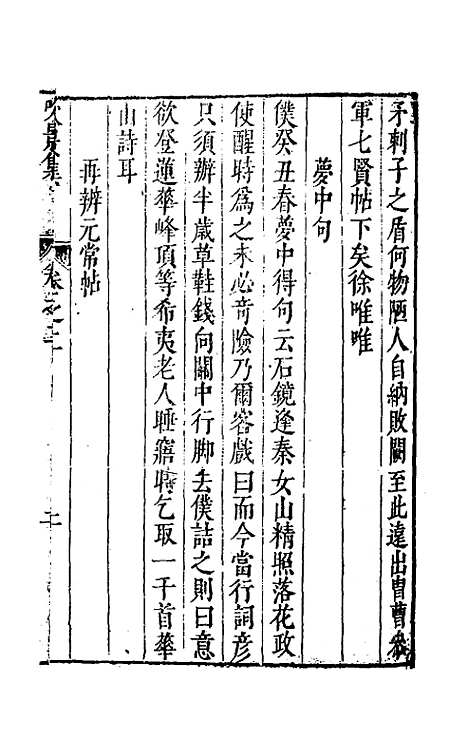 矛刺子之盾何物陋人自納敗闕至此遠出曹曹參
軍七賢帖下矣徐唯唯
夢中句
僕癸丑春夢中得句云石鏡逢秦女山精照落花政
使醒時爲之未必奇險乃爾客戲曰而今當行詞彥
只須辦半歲草鞋錢向關中行脚去僕詰之則曰意
欲登蓮華峰頂等希夷老人睡寤時乞取一千首華
山詩耳
再辨元常帖
吹景集
卷之二
二